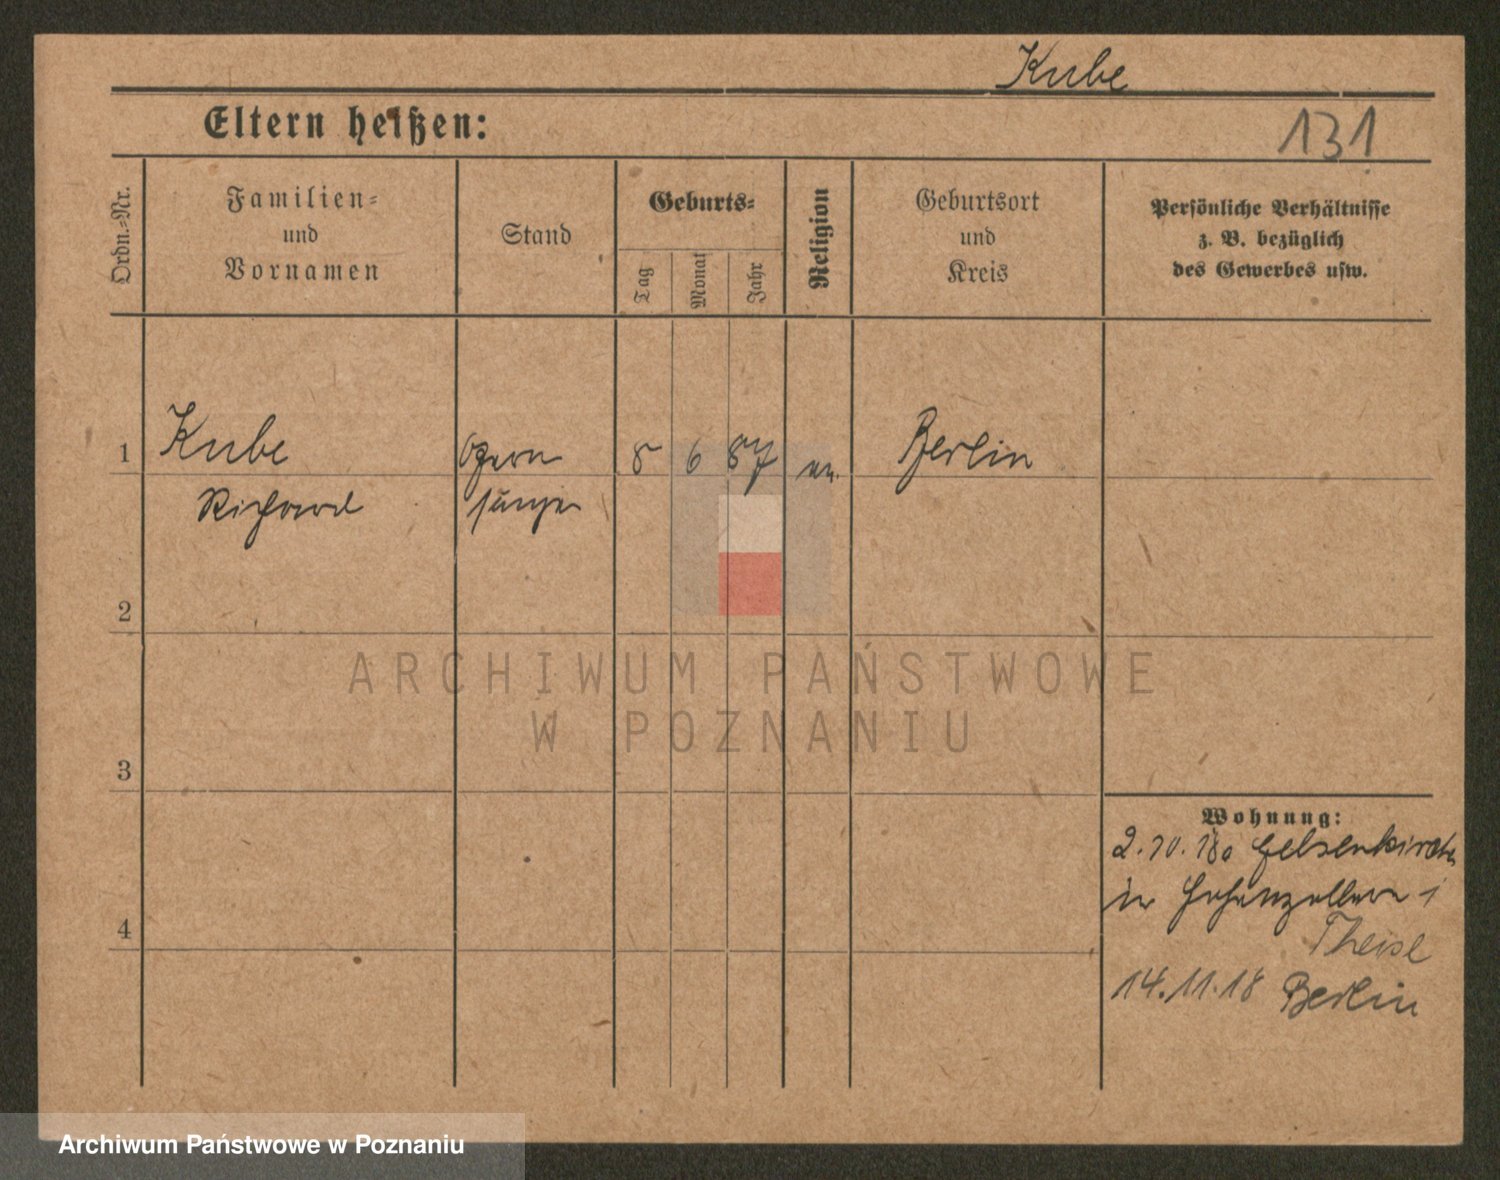 Kube
Eltern heißen:
131
Ordn.-Nr.
Familien-
und
Vornamen
Stand
Geburts-
Tag
Monat
Jahr
Religion
Geburtsort
und
Kreis
Persönliche Verhältnisse
z. B. bezüglich
des Gewerbes usw.
1
Kube
Opern
8
6
87
ev.
Berlin
Richard
sänger
2
ARCHIWUM PAŃSTWOWE
W POZNANIU
3
Wohnung:
2.10.18 Gelsenkirchen
Hohenzollern
4
14.11.18 Berlin
Archiwum Państwowe w Poznaniu